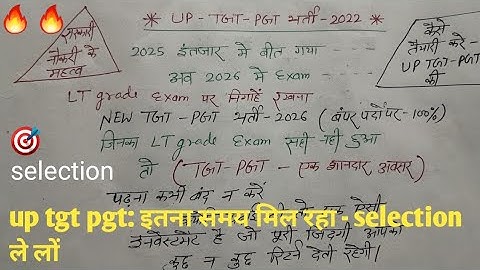 सरकारी
नौकरी के
महत्व
* UP - TGT - PGT भर्ती - 2022 *
कैसे
तैयारी करे -
UP TGT - PGT
की
2025 इंतजार में बीत गया
अब 2026 मे Exam
LT grade Exam पर निगाहें रखना
NEW TGT - PGT भर्ती - 2026 ( बंपर पदों पर - 100%)
जिनका LT grade Exam सही नही हुआ
तो ( TGT - PGT - एक शानदार अवसर )
selection
पढ़ना कभी बंद न करें
एक ऐसी
up tgt pgt: इतना समय मिल रहा - selection
ले लों
इनवेस्टमेंट है जो पूरी जिंदगी आपको
कुछ न कुछ रिटर्न देती रहेगी।